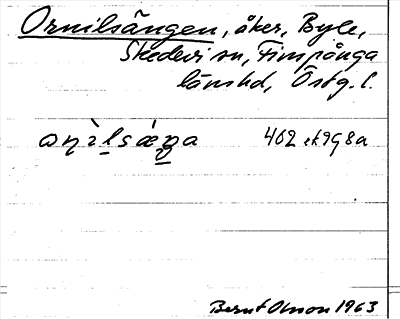 Ornilsängen, åker, Byle,
Skedevi sn, Finspånga
länshd, Östg. l.
402 ek 9 g 8 a
Bernt Olsson 1963